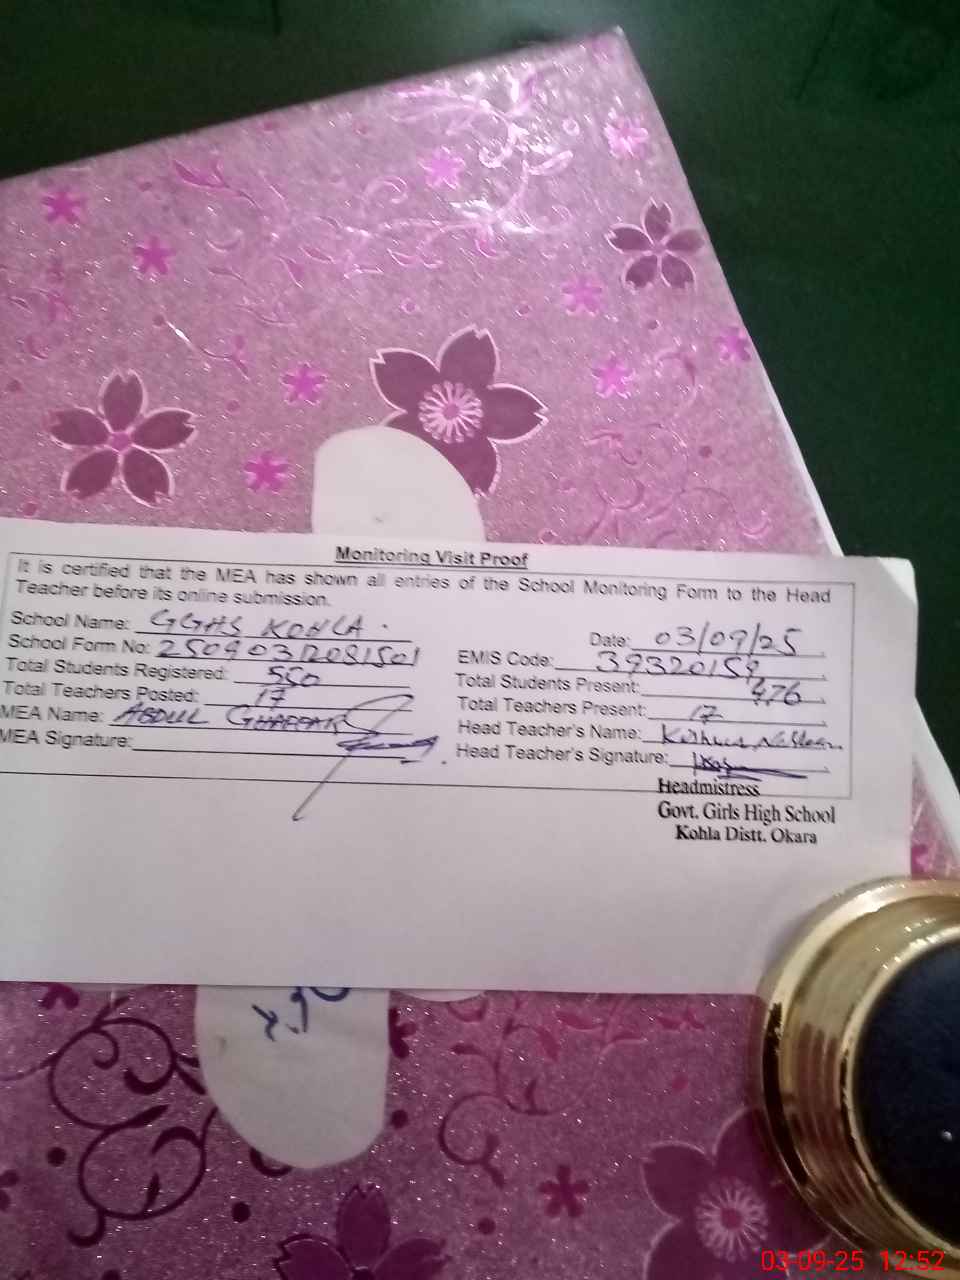 Monitoring Visit Proof
It is certified that the MEA has shown all entries of the School Monitoring Form to the Head
Teacher before its online submission.
School Name: GGHS KOHLA.
Date: 03/09/25
School Form No: 25090312081501
EMIS Code: 39320159
Total Students Registered: 550
Total Students Present: 476
Total Teachers Posted: 17
Total Teachers Present: 17
MEA Name: ABDUL GHAFFAR
Head Teacher's Name:
MEA Signature:
Head Teacher's Signature:
Headmistress
Govt. Girls High School
Kohla Distt. Okara
03-09-25 12:52